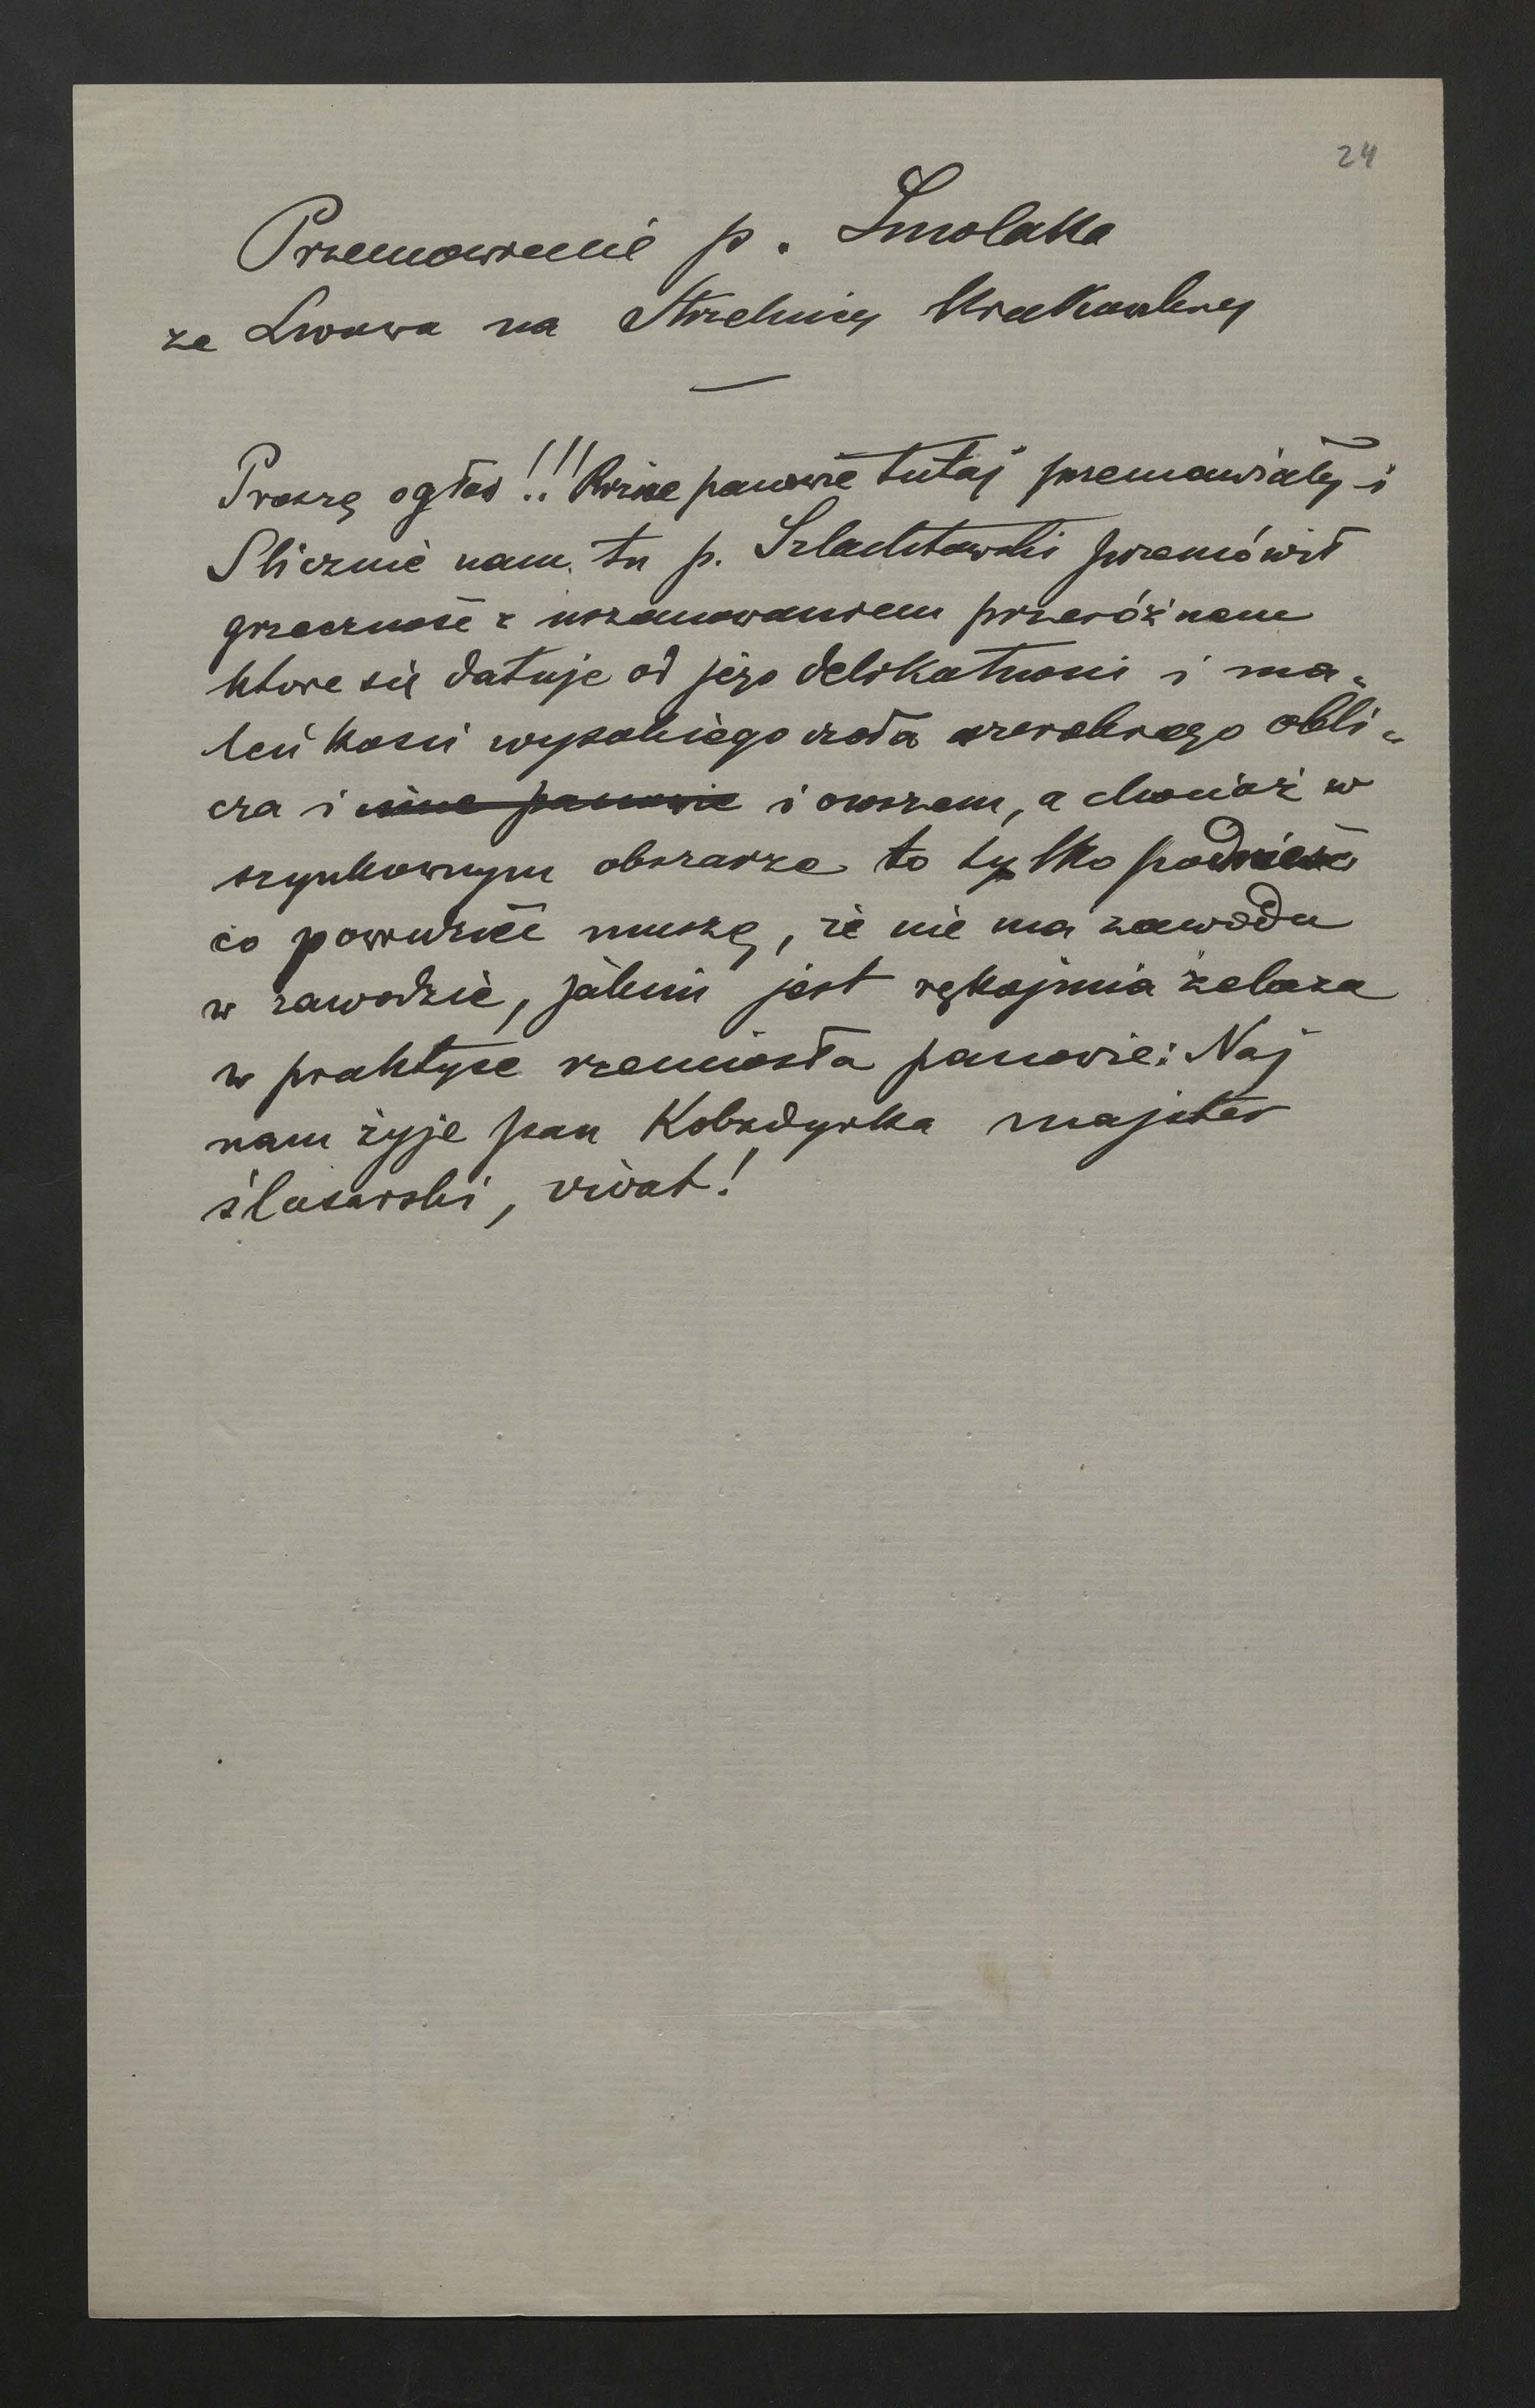 24
Przemowienie p. Smolaka
ze Lwowa na Strzelnicy Krakowskiej
Proszę ogłos!!! Rużne panowie tutaj przemawiały i
Slicznie nam tu p. Szlachtowski przemówił
grzeczność z uszanowaniem przeróżnem
ktore się datuje od jego delikatnosci i ma-
leńkosci wysokiego czoła szerokiego obli-
cza i inne panowie i owszem, a chociaż w
szynkownym obszarze to tylko podnieść
co powrucić muszę, że nie ma zawodu
w zawodzie, jakim jest rękojmia żelaza
w praktyce rzemiosła panowie: Naj
nam żyje pan Kobzdyrka majster
ślusarski, vivat!